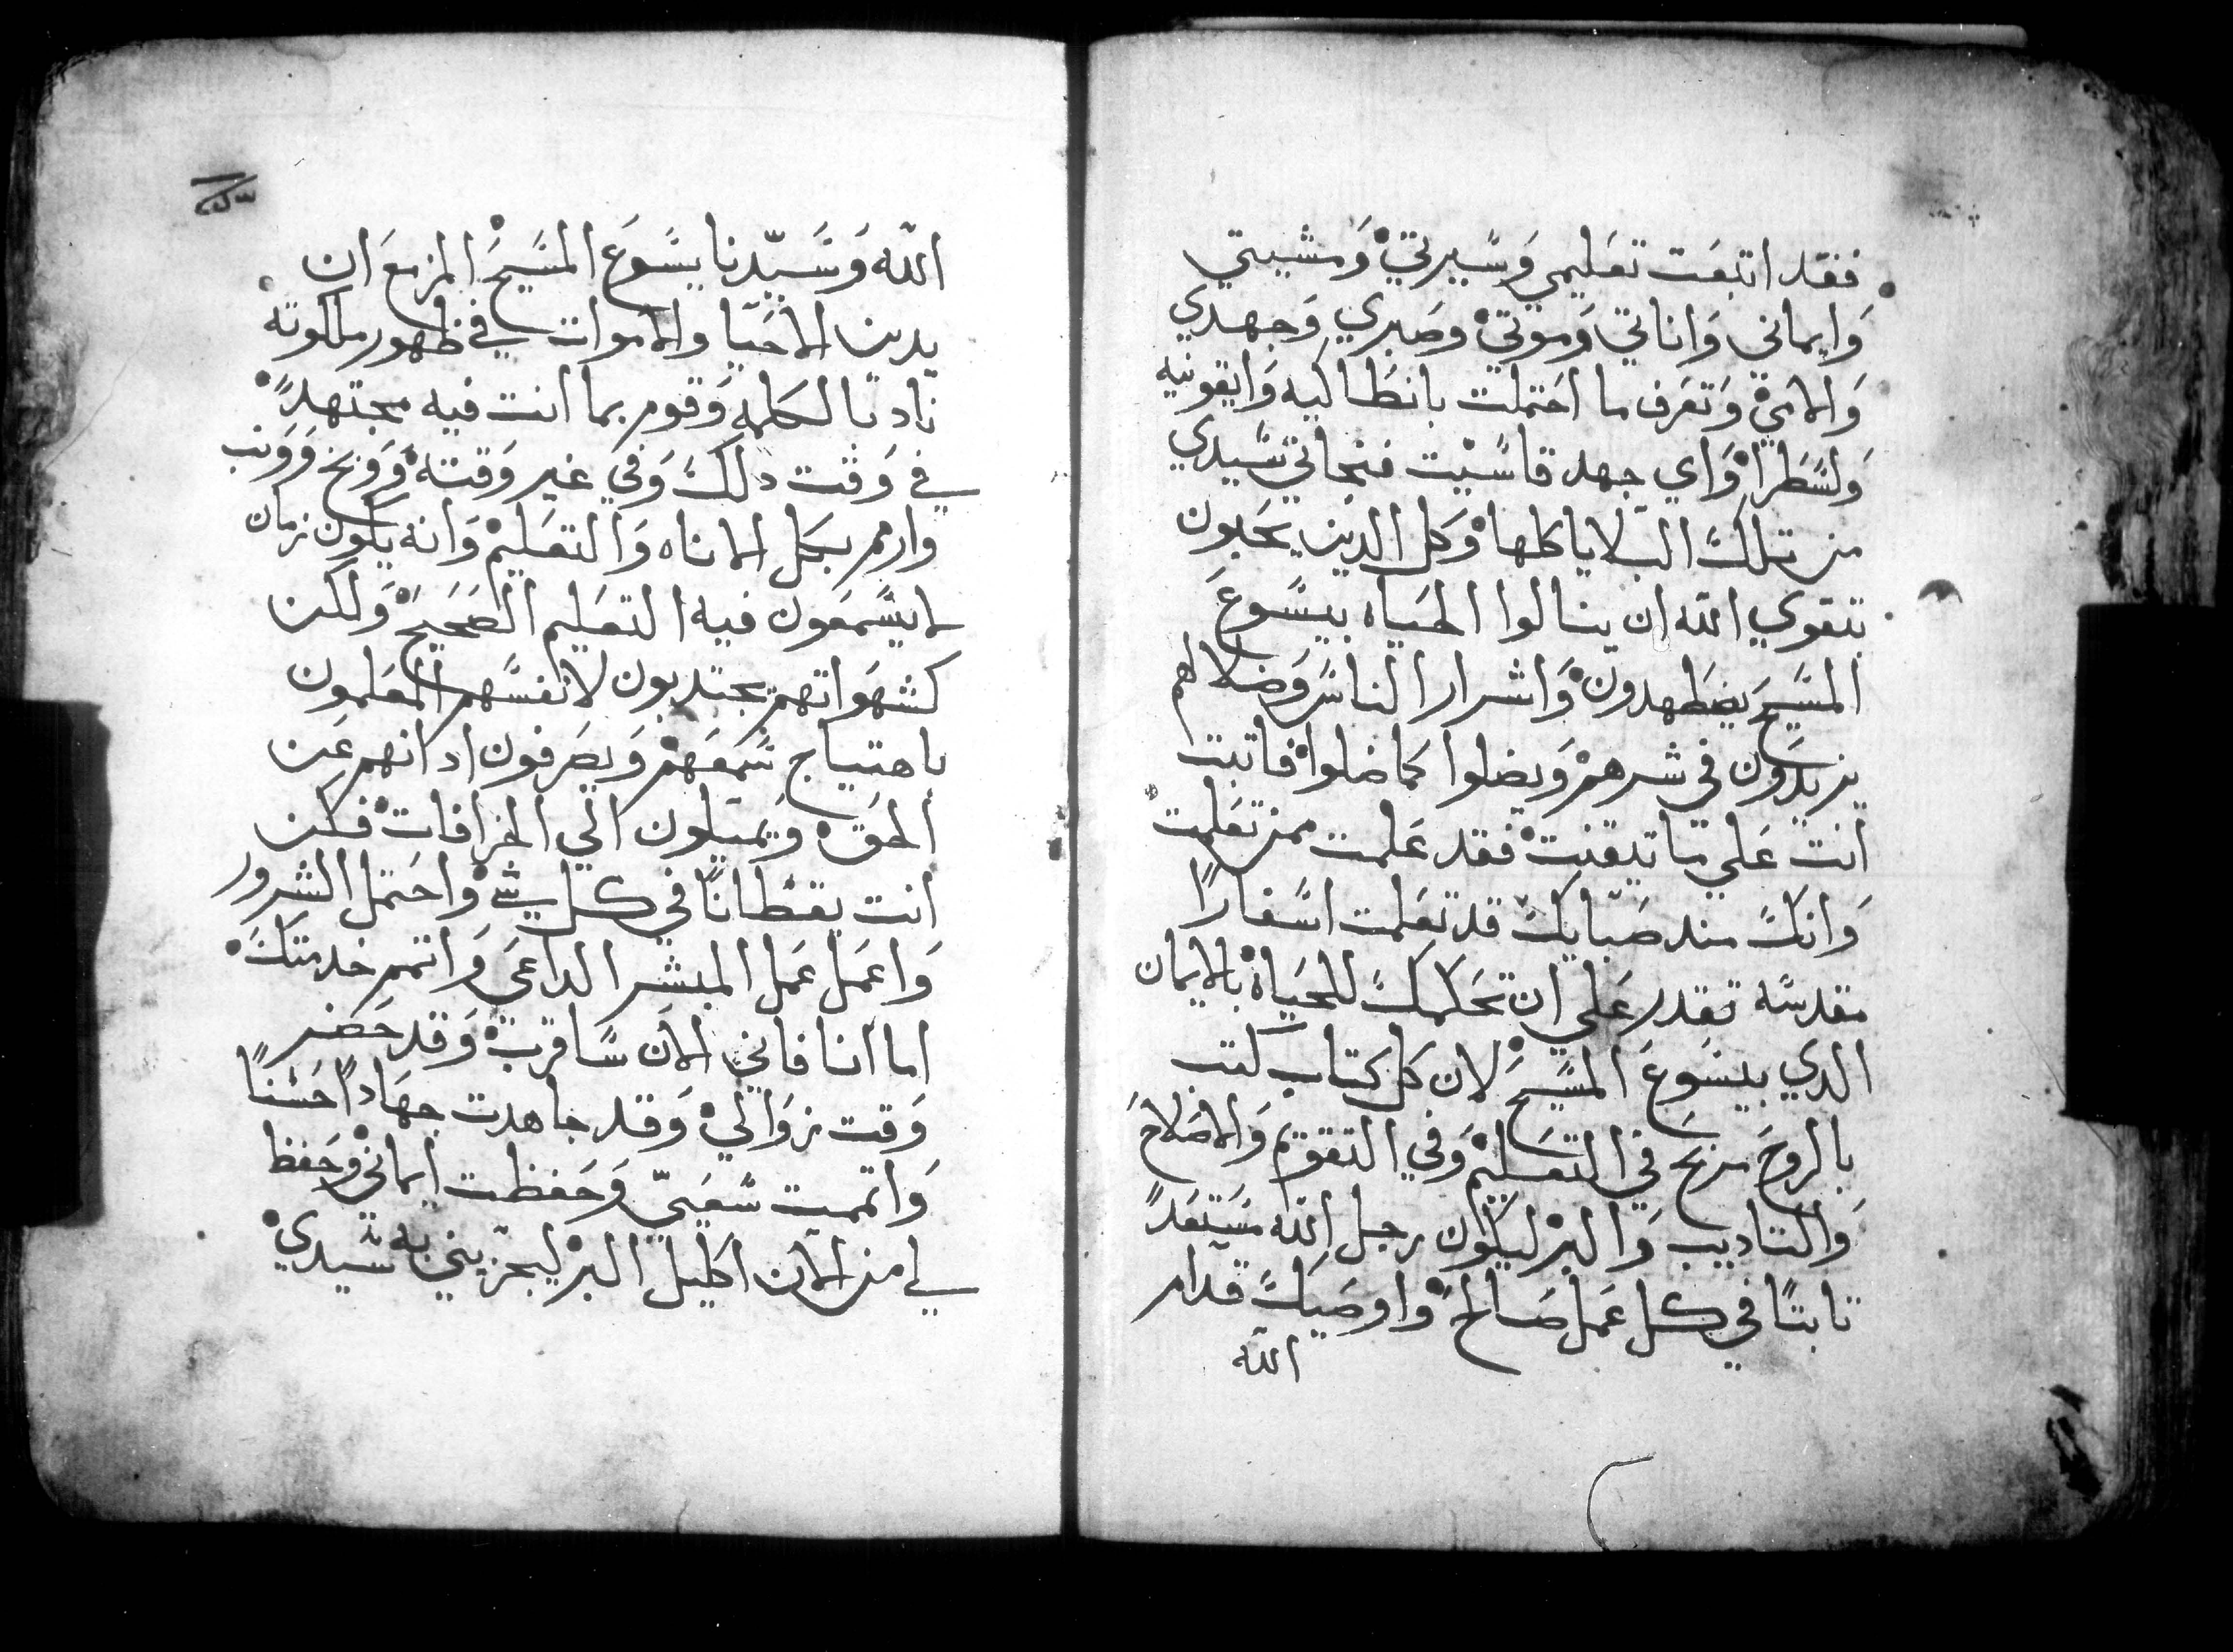 فقد اتبعت تعليمي وسيرتي ومشيتي
وايماني واناتي ومودتي وصبري وجهدي
والامي وتعرف ما احتملت بانطاكيه وايقونيه
ولسطرا واي جهد قاسيت فنجاني سيدي
من تلك البلايا كلها وكل الدين يحبون
بتقوي الله ان ينالوا الحياه بيسوع
المسيح يضطهدون واشرار الناس وضلالهم
يزيدون في شرهم ويضلوا كما ضلوا فاتبت
انت علي ما تيقنت فقد علمت ممن تعلمت
وانك مند صبايك قد تعلمت اسفارا
مقدسه تقدر علي ان تحكمك للحياه بالايمان
الدي بيسوع المسيح لان كل كتاب كتب
بالروح مربح في التعليم وفي التقويم والاصلاح
والتاديب والبر ليكون رجل الله مستعدا
تابتا في كل عمل صالح واوصيك قدام
الله
الله وسيدنا يسوع المسيح المزمع ان
يدين الاحيا والاموات في ظهور ملكوته
ناد بالكلمه وقوم بما انت فيه مجتهدا
في وقت دلك وفي غير وقته ووبخ وونب
وارم بكل الاناه والتعليم وانه يكون زمان
لا يسمعون فيه التعليم الصحيح ولكن
كشهواتهم يجتدبون لانفسهم المعلمون
باهتياج سمعهم ويصرفون ادانهم عن
الحق ويميلون الي الخرافات فكن
انت يقظانا في كل شي واحتمل الشرور
واعمل عمل المبشر الداعي واتمم خدمتك
اما انا فاني الان ساقرب وقد حضر
وقت زوالي وقد جاهدت جهادا حسنا
واتممت سعيي وحفظت ايماني وحفظ
لي من الان اكليل البر ليجزيني به سيدي